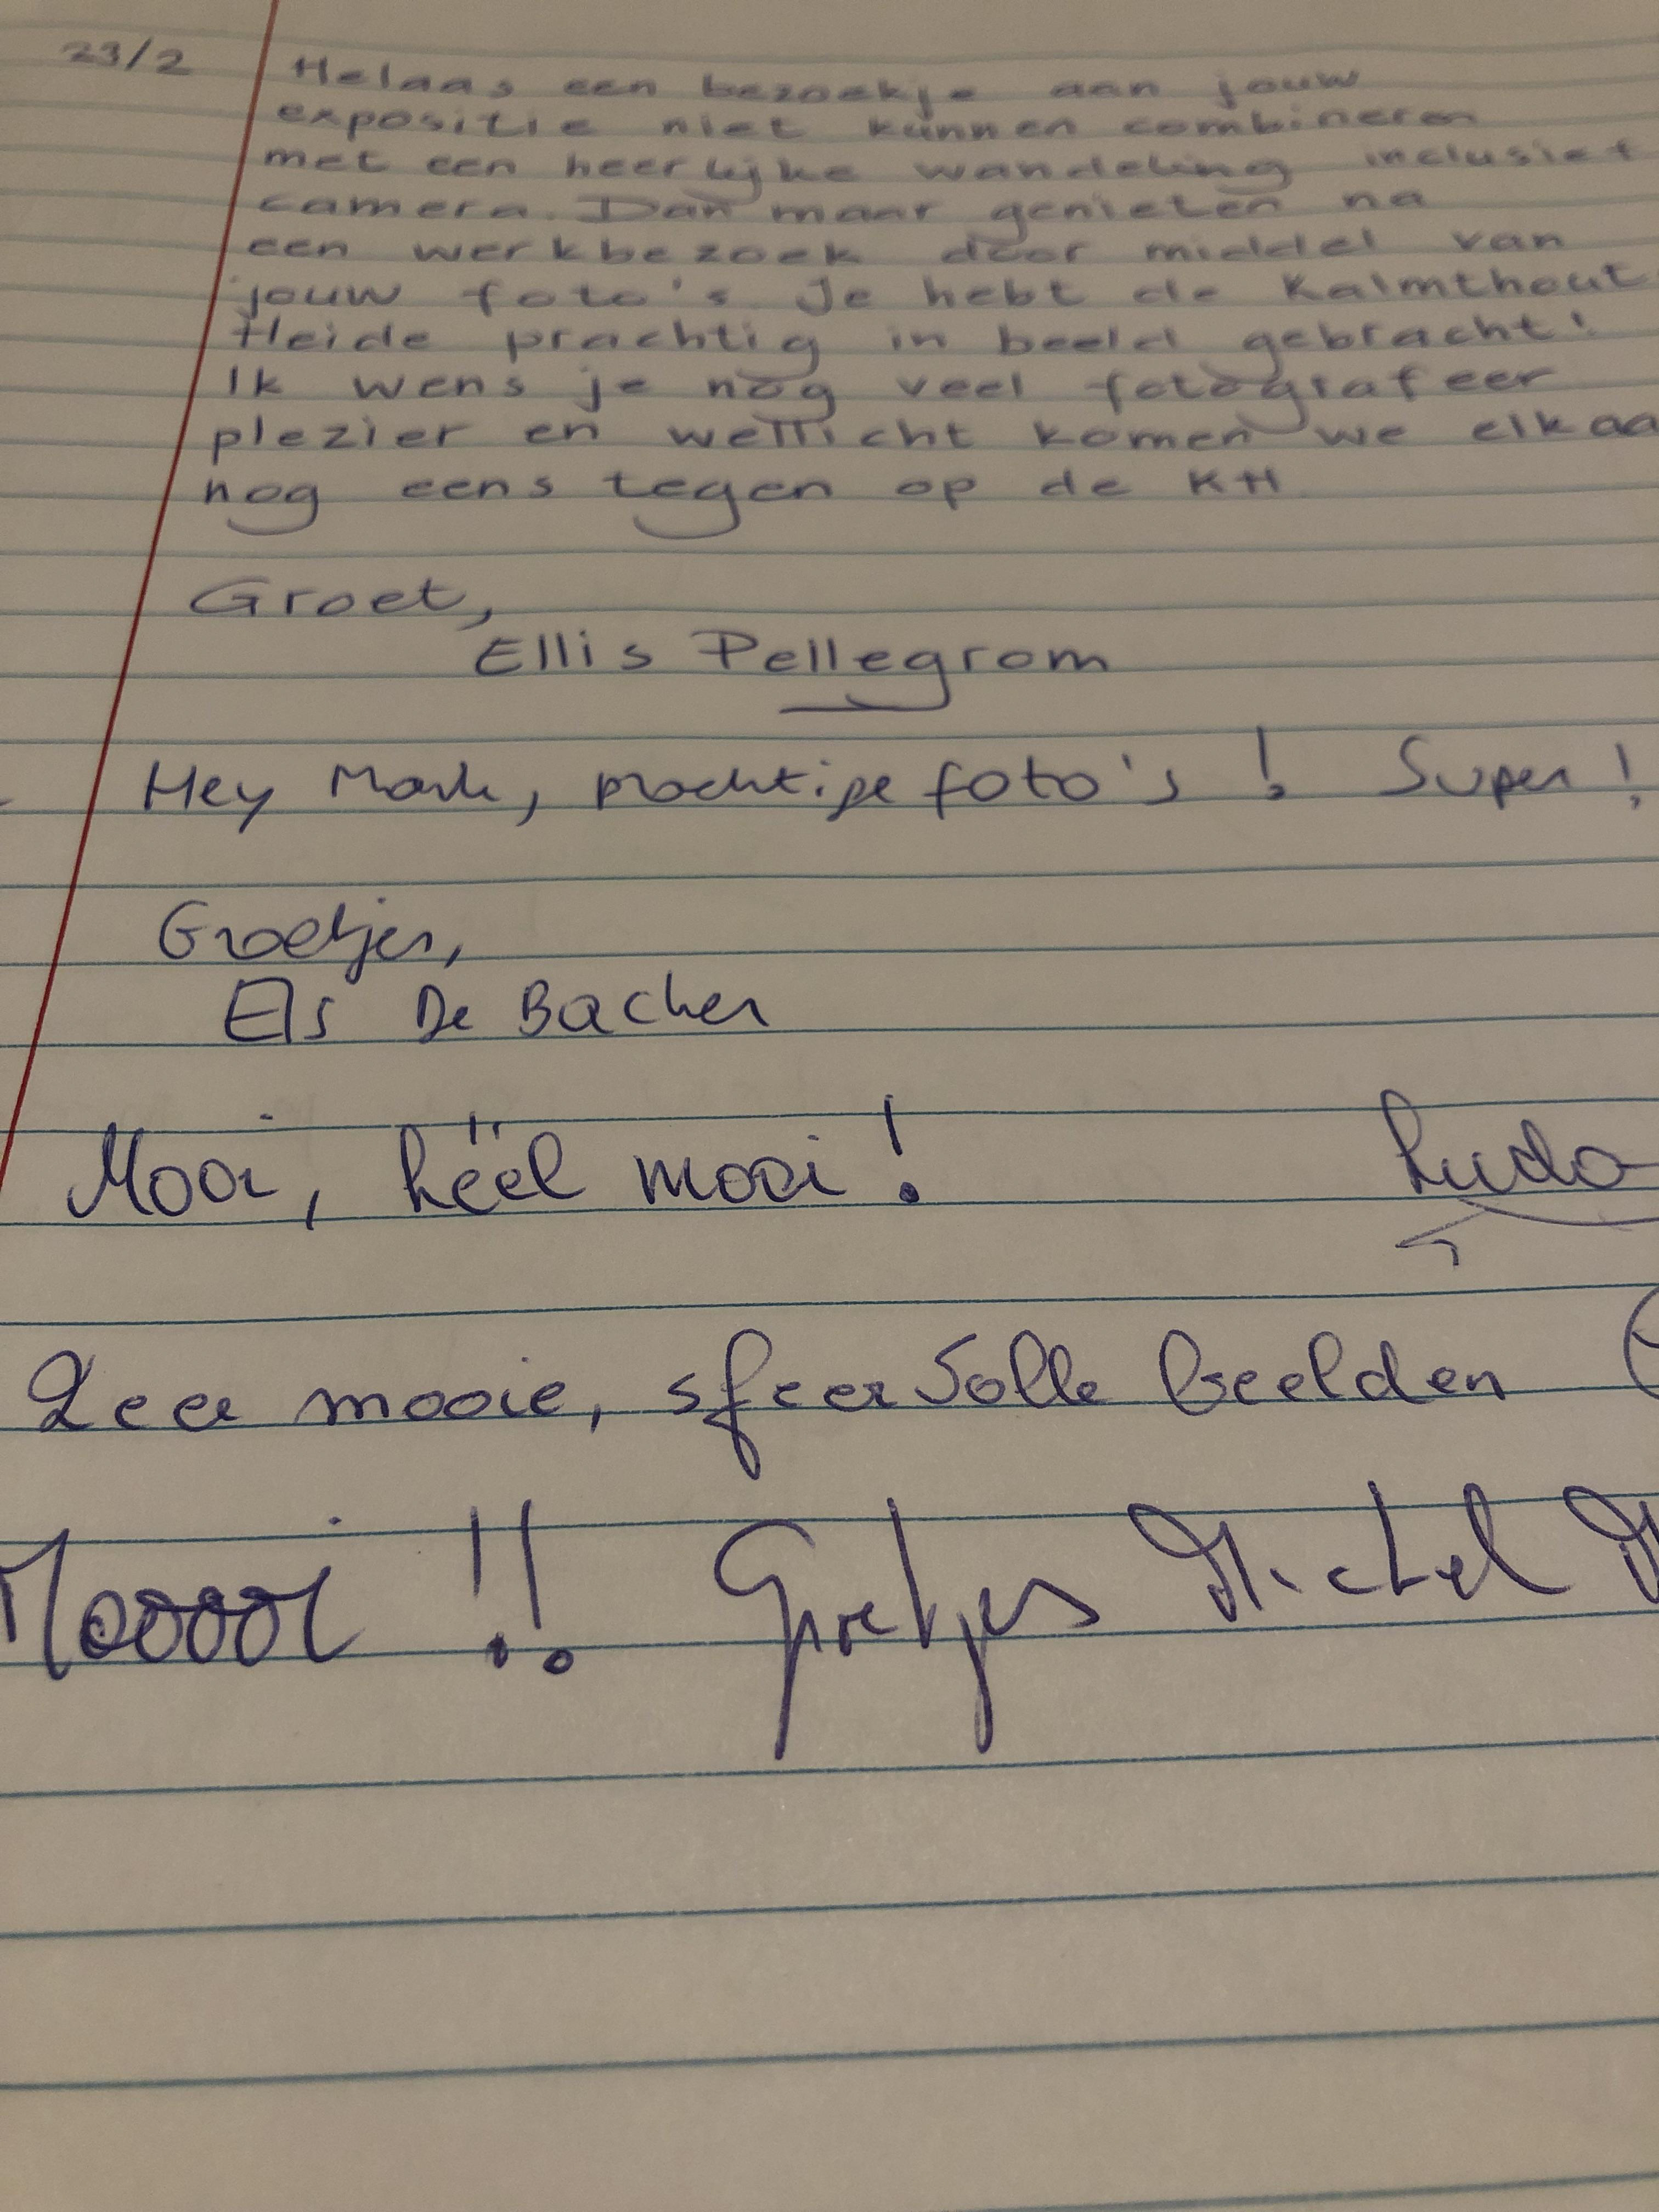 23/2 Helaas een bezoekje aan jouw
expositie niet kunnen combineren
met een heerlijke wandeling inclusief
camera. Dan maar genieten na
een werkbezoek door middel van
jouw foto's. Je hebt de Kalmthout
Heide prachtig in beeld gebracht!
Ik wens je nog veel fotografeer
plezier en wellicht komen we elkaa
nog eens tegen op de KH.
Groet,
Ellis Pellegrom
Hey Mark, prachtige foto's! Super!
Groetjes,
Els De Backer
Mooi, héél mooi! Ludo
Zeer mooie, sfeervolle beelden
Mooooi!! Groetjes Michel